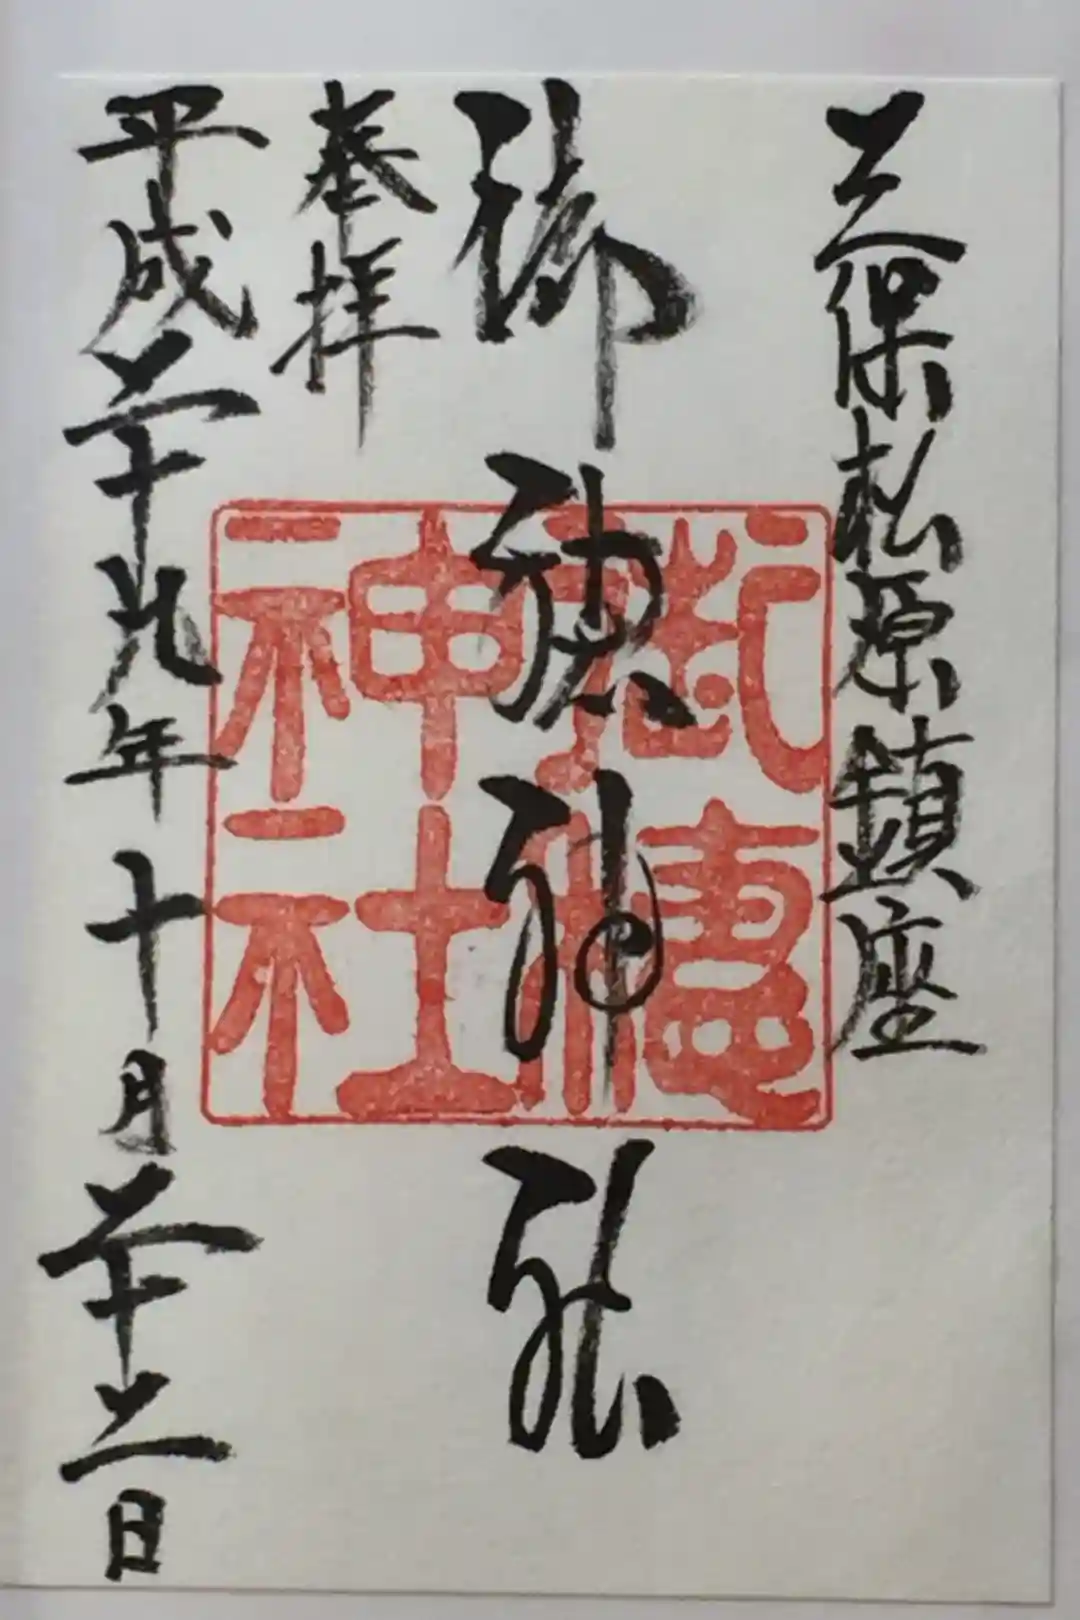 三保松原鎮座
御穂神社
奉拝
平成二十九年十月二十二日
御穗
神社